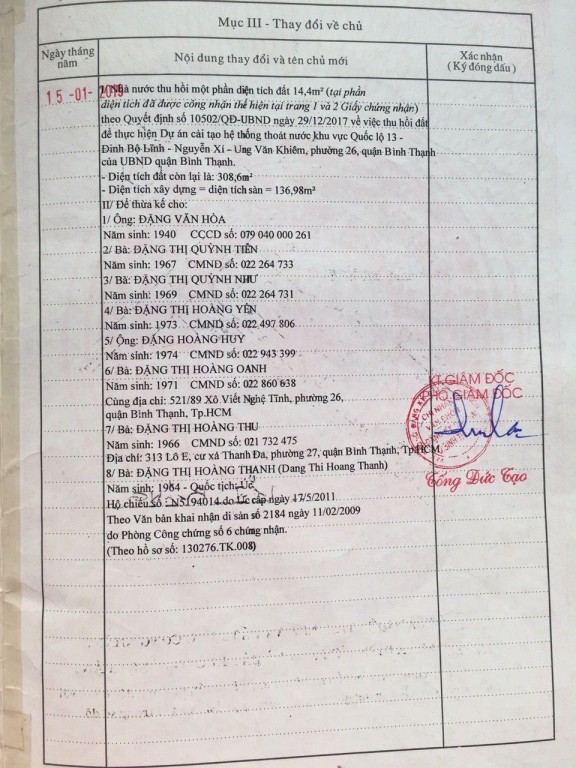 Mục III - Thay đổi về chủ
Ngày tháng năm
Nội dung thay đổi và tên chủ mới
Xác nhận
( Ký đóng dấu )
15 -01- 2019
I/ Nhà nước thu hồi một phần diện tích đất 14,4m² (tại phần
diện tích đã được công nhận thể hiện tại trang 1 và 2 Giấy chứng nhận)
theo Quyết định số 10502/QĐ-UBND ngày 29/12/2017 về việc thu hồi đất
để thực hiện Dự án cải tạo hệ thống thoát nước khu vực Quốc lộ 13 -
Đinh Bộ Lĩnh - Nguyễn Xí - Ung Văn Khiêm, phường 26, quận Bình Thạnh
của UBND quận Bình Thạnh.
- Diện tích đất còn lại là: 308,6m²
- Diện tích xây dựng = diện tích sàn = 136,98m²
II/ Để thừa kế cho:
1/ Ông: ĐẶNG VĂN HÒA
Năm sinh: 1940 CCCD số: 079 040 000 261
2/ Bà: ĐẶNG THỊ QUỲNH TIÊN
Năm sinh: 1967 CMND số: 022 264 733
3/ Bà: ĐẶNG THỊ QUỲNH NHƯ
Năm sinh: 1969 CMND số: 022 264 731
4/ Bà: ĐẶNG THỊ HOÀNG YẾN
Năm sinh: 1973 CMND số: 022 497 806
5/ Ông: ĐẶNG HOÀNG HUY
Năm sinh: 1974 CMND số: 022 943 399
6/ Bà: ĐẶNG THỊ HOÀNG OANH
Năm sinh: 1971 CMND số: 022 860 638
Cùng địa chỉ: 521/89 Xô Viết Nghệ Tĩnh, phường 26,
quận Bình Thạnh, Tp.HCM
7/ Bà: ĐẶNG THỊ HOÀNG THU
Năm sinh: 1966 CMND số: 021 732 475
Địa chỉ: 313 Lô E, cư xá Thanh Đa, phường 27, quận Bình Thạnh, Tp.HCM
8/ Bà: ĐẶNG THỊ HOÀNG THANH (Dang Thi Hoang Thanh)
Năm sinh: 1964 - Quốc tịch: Úc
Hộ chiếu số : N5194014 do Úc cấp ngày 17/5/2011.
Theo Văn bản khai nhận di sản số 2184 ngày 11/02/2009
do Phòng Công chứng số 6 chứng nhận.
(Theo hồ sơ số: 130276.TK.008)
KT.GIÁM ĐỐC
PHÓ GIÁM ĐỐC
Tống Đức Tạo